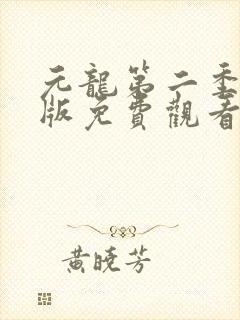 元龍第二季
版免費觀看
黃曉芳